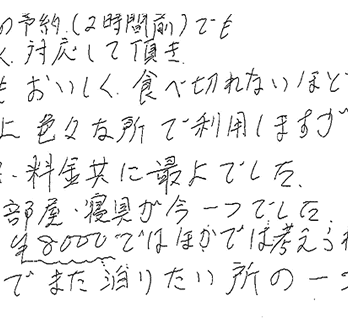 の予約.(2時間前)でも
く.対応して頂き.
もおいしく.食べ切れないほど
上色々な所で利用しますが
・料金共に最上でした.
部屋・寝具が今一つでした.
¥8000ではほかでは考えられ
でまた泊りたい所の一つ